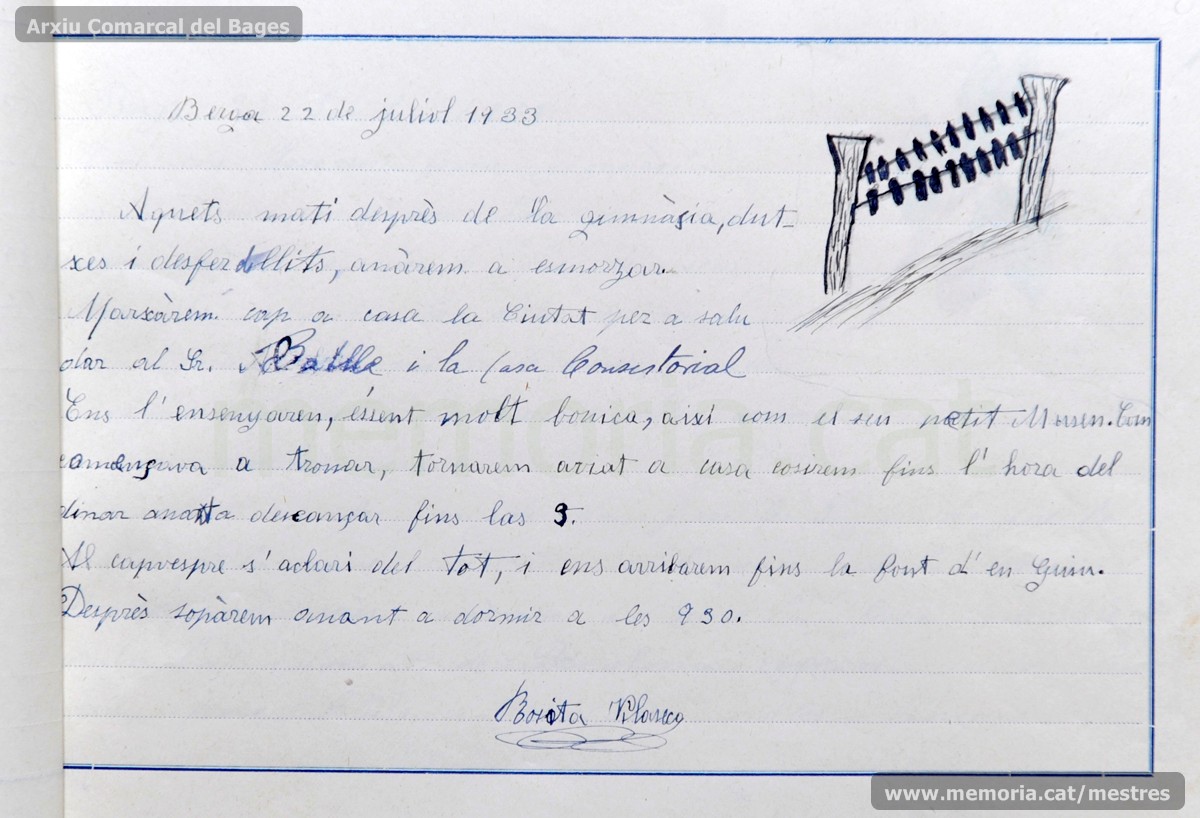 Arxiu Comarcal del Bages
Berga 22 de juliol 1933
Aquets matí desprès de la gimnàsia, dut-
xes i desfer llits, anàrem a esmorzar.
Marxàrem cap a casa la Ciutat per a salu
dar al Sr. Batlle i la Casa Consistorial
Ens l'ensenyaren, éssent molt bonica, així com el seu petit Museu. Com
començava a tronar, tornarem aviat a casa cosirem fins l'hora del
dinar anant a descançar fins las 5.
Al capvespre s'aclari del tot, i ens arribarem fins la font d'en
Desprès sopàrem anant a dormir a les 930.
www.memoria.cat/mestres
memoria.cat